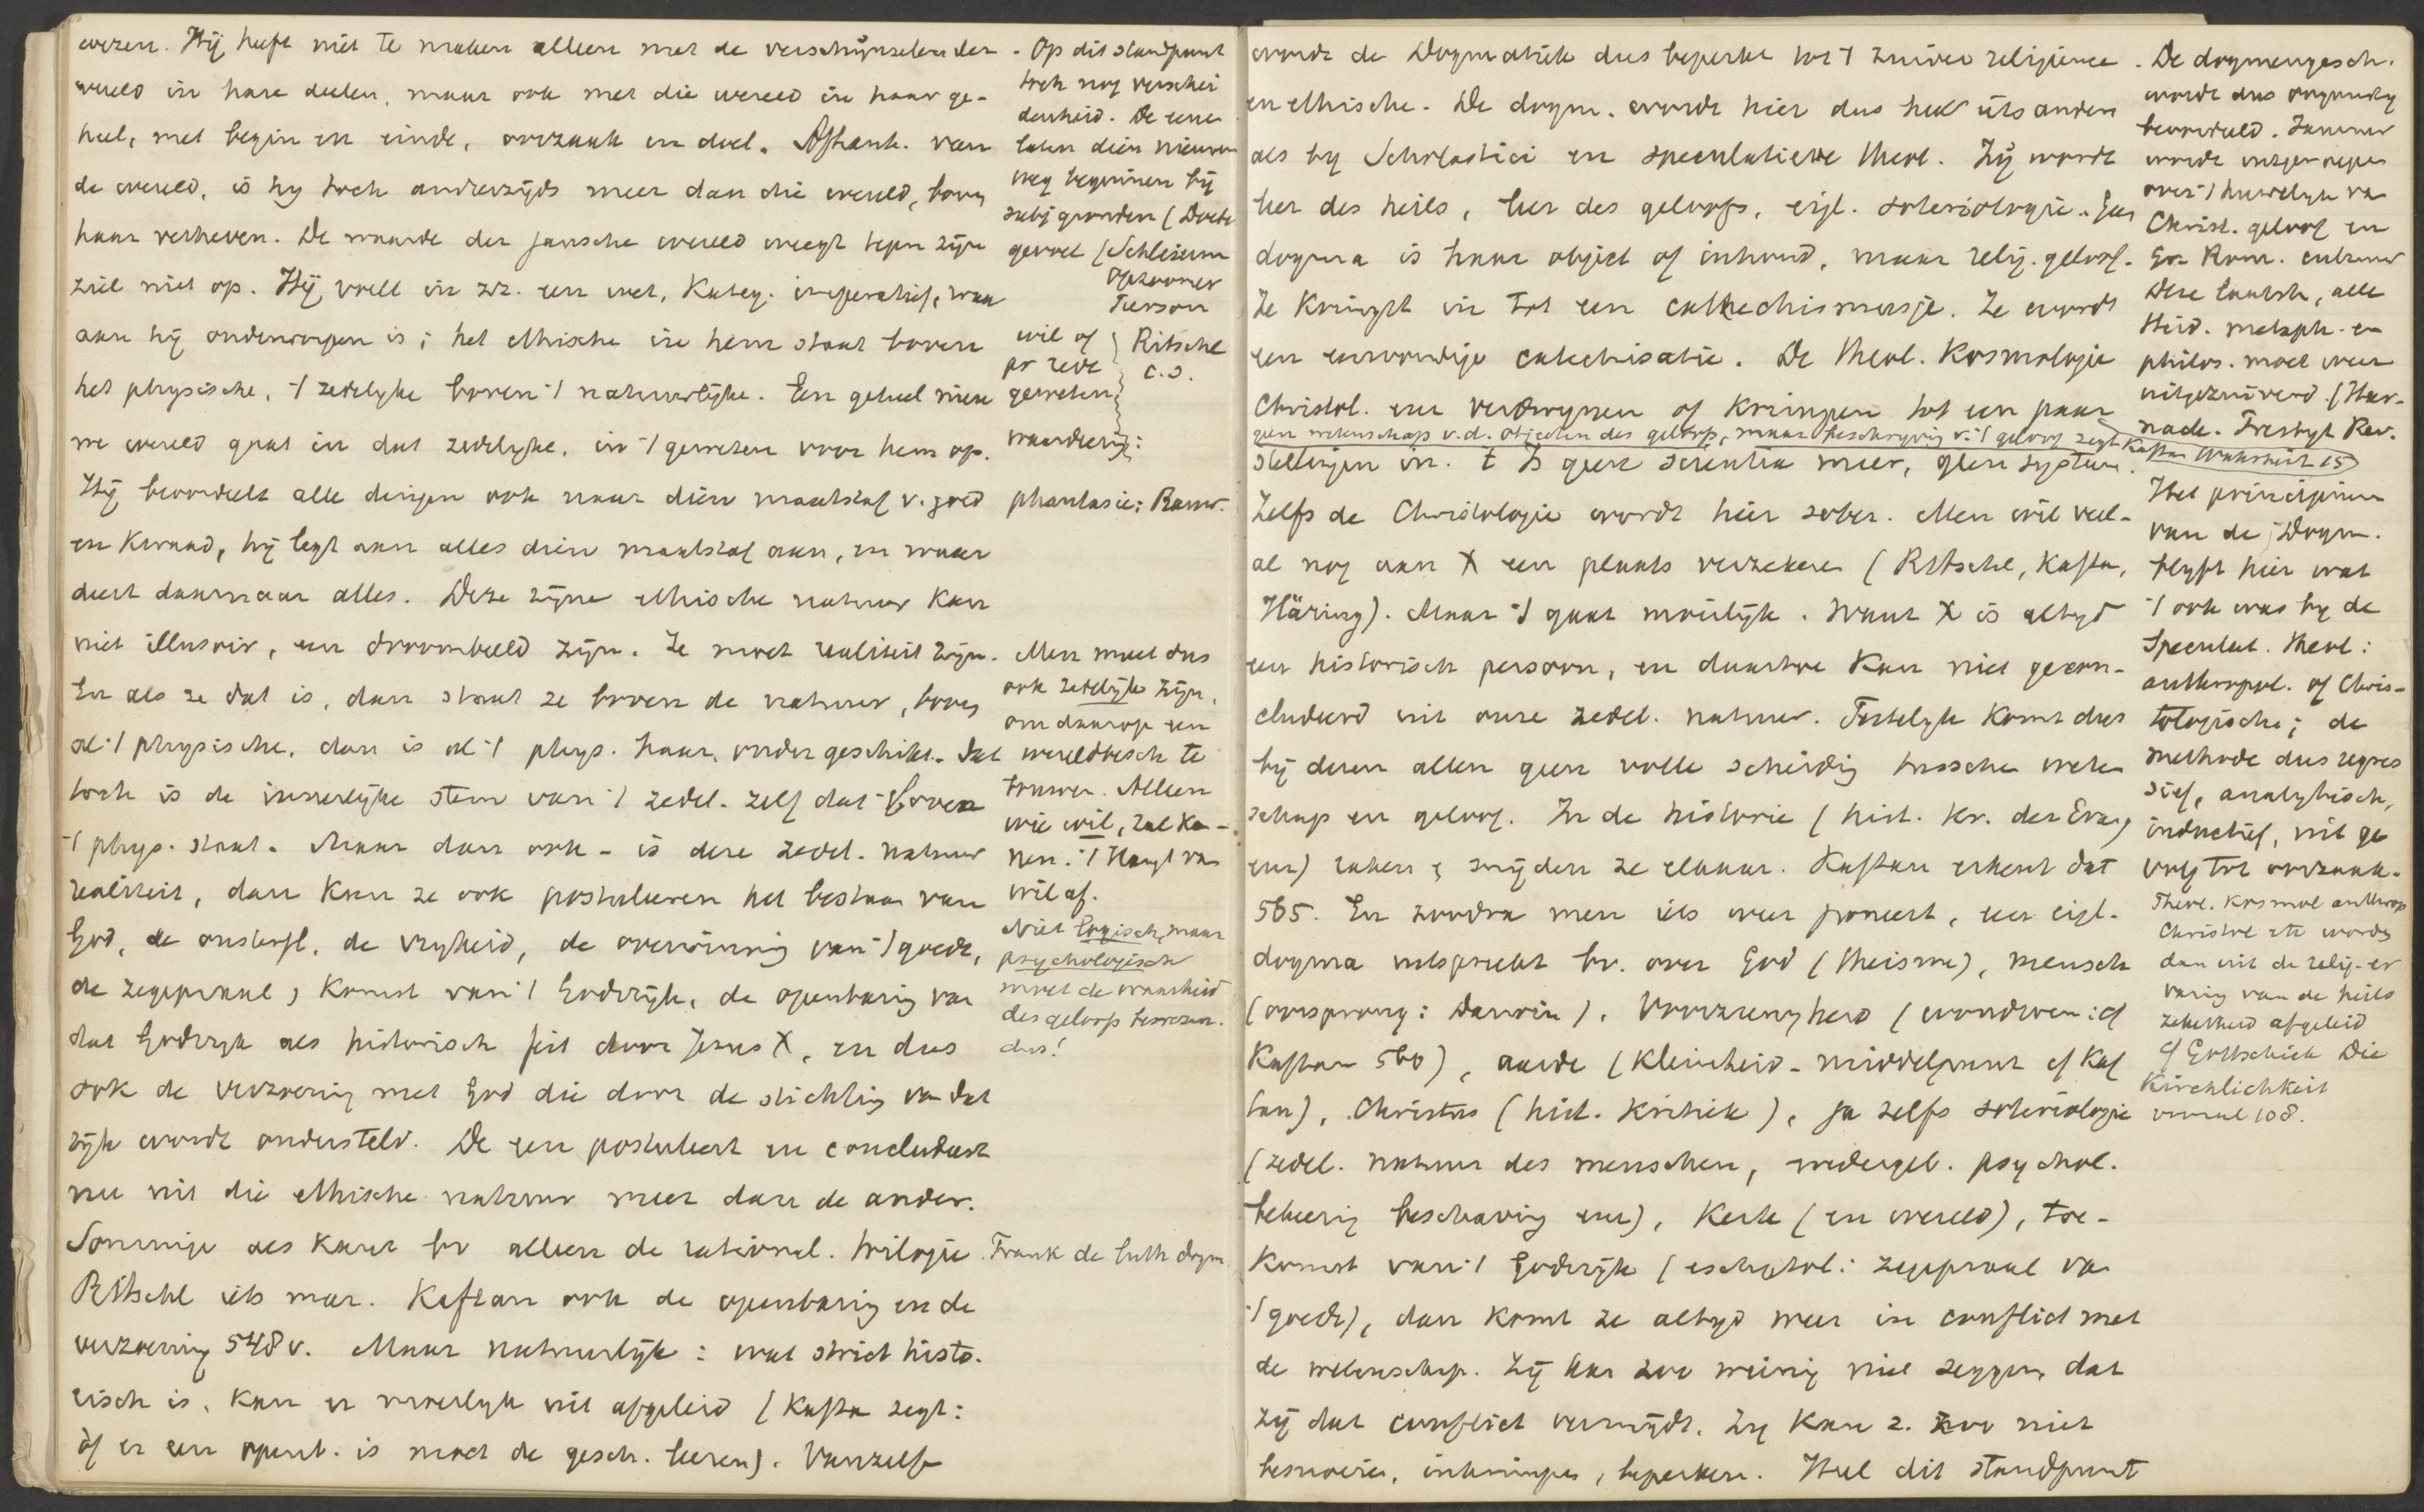 wezen. Hij heeft niet te maken alleen met de verschijnselen der
wereld in hare deelen, maar ook met die wereld in haar ge-
heel, met begin en einde, oorzaak en doel. Afhank. van
de wereld, is hy toch anderzijds meer dan die wereld, boven
haar verheven. De waarde der gansche wereld weegt tegen zijne
ziel niet op. Hij voelt in zx. een wet, Kateg. imperatief, waar
aan hij onderworpen is; het ethische in hem staat boven
het physische, 't zedelyke boven 't natuurlijke. Een geheel nieu
we wereld gaat in dat zedelyke, in 't geweten voor hem op.
Hij beoordeelt alle dingen ook naar dien maatstaf v. goed
en kwaad, hij legt aan alles dien maatstaf aan, en waar
deert daarnaar alles. Deze zijne ethische natuur kan
niet illusoir, een droombeeld zijn. Ze moet realiteit zijn.
En als ze dat is, dan staat ze boven de natuur, boven
al 't physische, dan is al 't phys. haar ondergeschikt. Dat
toch is de innerlijke stem van 't zedel. zelf dat 't boven
't phys. staat. Maar dan ook - is deze zedel. natuur
realiteit, dan kan ze ook postuleeren het bestaan van
God, de onsterfl. de vryheid, de overwinning van 't goede,
de zegepraal, komst van 't Godsrijk, de openbaring van
dat Godsryk als historisch feit door Jezus X, en dus
ook de verzoening met God die door de stichting van dat
rijk wordt ondersteld. De een postuleert en concludeert
nu uit die ethische natuur meer dan de ander.
Sommige als Kant bv alleen de rational. trilogie.
Ritschl iets meer. Kaftan ook de openbaring en de
verzoening 548 v. Maar natuurlijk: wat strict histo-
risch is, kan er moeilyk uit afgeleid (Kaftan zegt:
òf er een openb. is moet de gesch. leeren). Vanzelf
. Op dit standpunt
toch nog verschei
denheid. De eene
laten dien nieuwen
weg beginnen bij
subj gronden (
gevoel (Schleierm
Opzoomer
Pierson
wil of
pr rede
geweten
Ritschl
c.s.
waardeering:
phantasie: Rauw.
Men moet dus
ook zedelijk zijn,
om daarop een
wereldbesch te
bouwen. Alleen
wie wil, zal kon-
nen. 't Hangt van
wil af.
Niet logisch, maar
psychologisch
moet de waarheid
des geloofs bewezen.
dus!
Frank de luth dogm.
wordt de Dogmatiek dus beperkt tot 't zuiver religieuse
en ethische. De dogm. wordt hier dus heel iets anders
als by Scholastici en speculatieve theol. Zij wordt
leer des heils, leer des geloofs, eigl. soteriologie. Geen
dogma is haar object of inhoud, maar relig. geloof.
Ze kringt in tot een cathechismusje. Ze wordt
een eenvoudige catechisatie. De theol. Kosmologie
Christol. enz verdwynen of kringen tot een paar
geen wetenschap v.d. objecten des geloofs, maar beschryving v. 't geloof zegt Kaftan Wahrheit 15
stellingen in. 't Is geen scientia meer, geen systeem.
Zelfs de Christologie wordt hier sober. Men wil veel-
al nog aan X een plaats verzekeren (Ritschl, Kaftan,
Häring). Maar 't gaat moeilijk. Want X is altyd
een historisch persoon, en daartoe kan niet gecon-
cludeerd uit onze zedel. natuur. Feitelyk komt dus
bij dezen allen geen volle scheiding tussche weten
schap en geloof. In de historie (hist. kr. der Evang
enz) raken & snijden ze elkaar. Kaftan erkent dat
565. En zoodra men iets weer poneert, een eigl.
dogma uitspreekt bv. over God (theisme), mensch
(oorsprong: Darwin), Voorzienigheid (wonderen: cf
Kaftan 560), aarde (kleinheid - middelpunt cf Kaf
tan), Christus (hist. kritiek), ja zelfs soteriologie
(zedel. natuur des menschen, wedergeb. psychol.
bekeering beschaving enz), Kerk (en wereld), toe-
komst van 't Godsrijk (eschatol: zegepraal van
't goede), dan komt ze altyd weer in conflict met
de wetenschap. Zij kan zoo weinig niet zeggen, dat
zij dat conflict vermijdt. Zy kan z. zoo niet
besnoeien, inkrimpen, beperken. Heel dit standpunt
. De dogmengesch.
wordt dus ongunstig
beoordeeld. Jammer
wordt uitgeroepen
over 't huwelyk van
Christ. geloof en
Gr Rom. cultuur
Deze laatste, alle
Heid. metaph. en
philos. moet weer
uitgezuiverd. (Har-
nack.
Het principium
van de Dogm.
blyft hier wat
't ook was by de
Speculat. theol:
anthropol. of Chris-
tologische; de
methode dus regres
sief, analytisch,
inductief, uit ge
volg tot oorzaak.
Theol. kosmol anthrop
Christol etc worden
dan uit de relig. er
varing van de heils
zekerheid afgeleid
cf Gottschick Die
Kirchlichkeit
vooral 108.